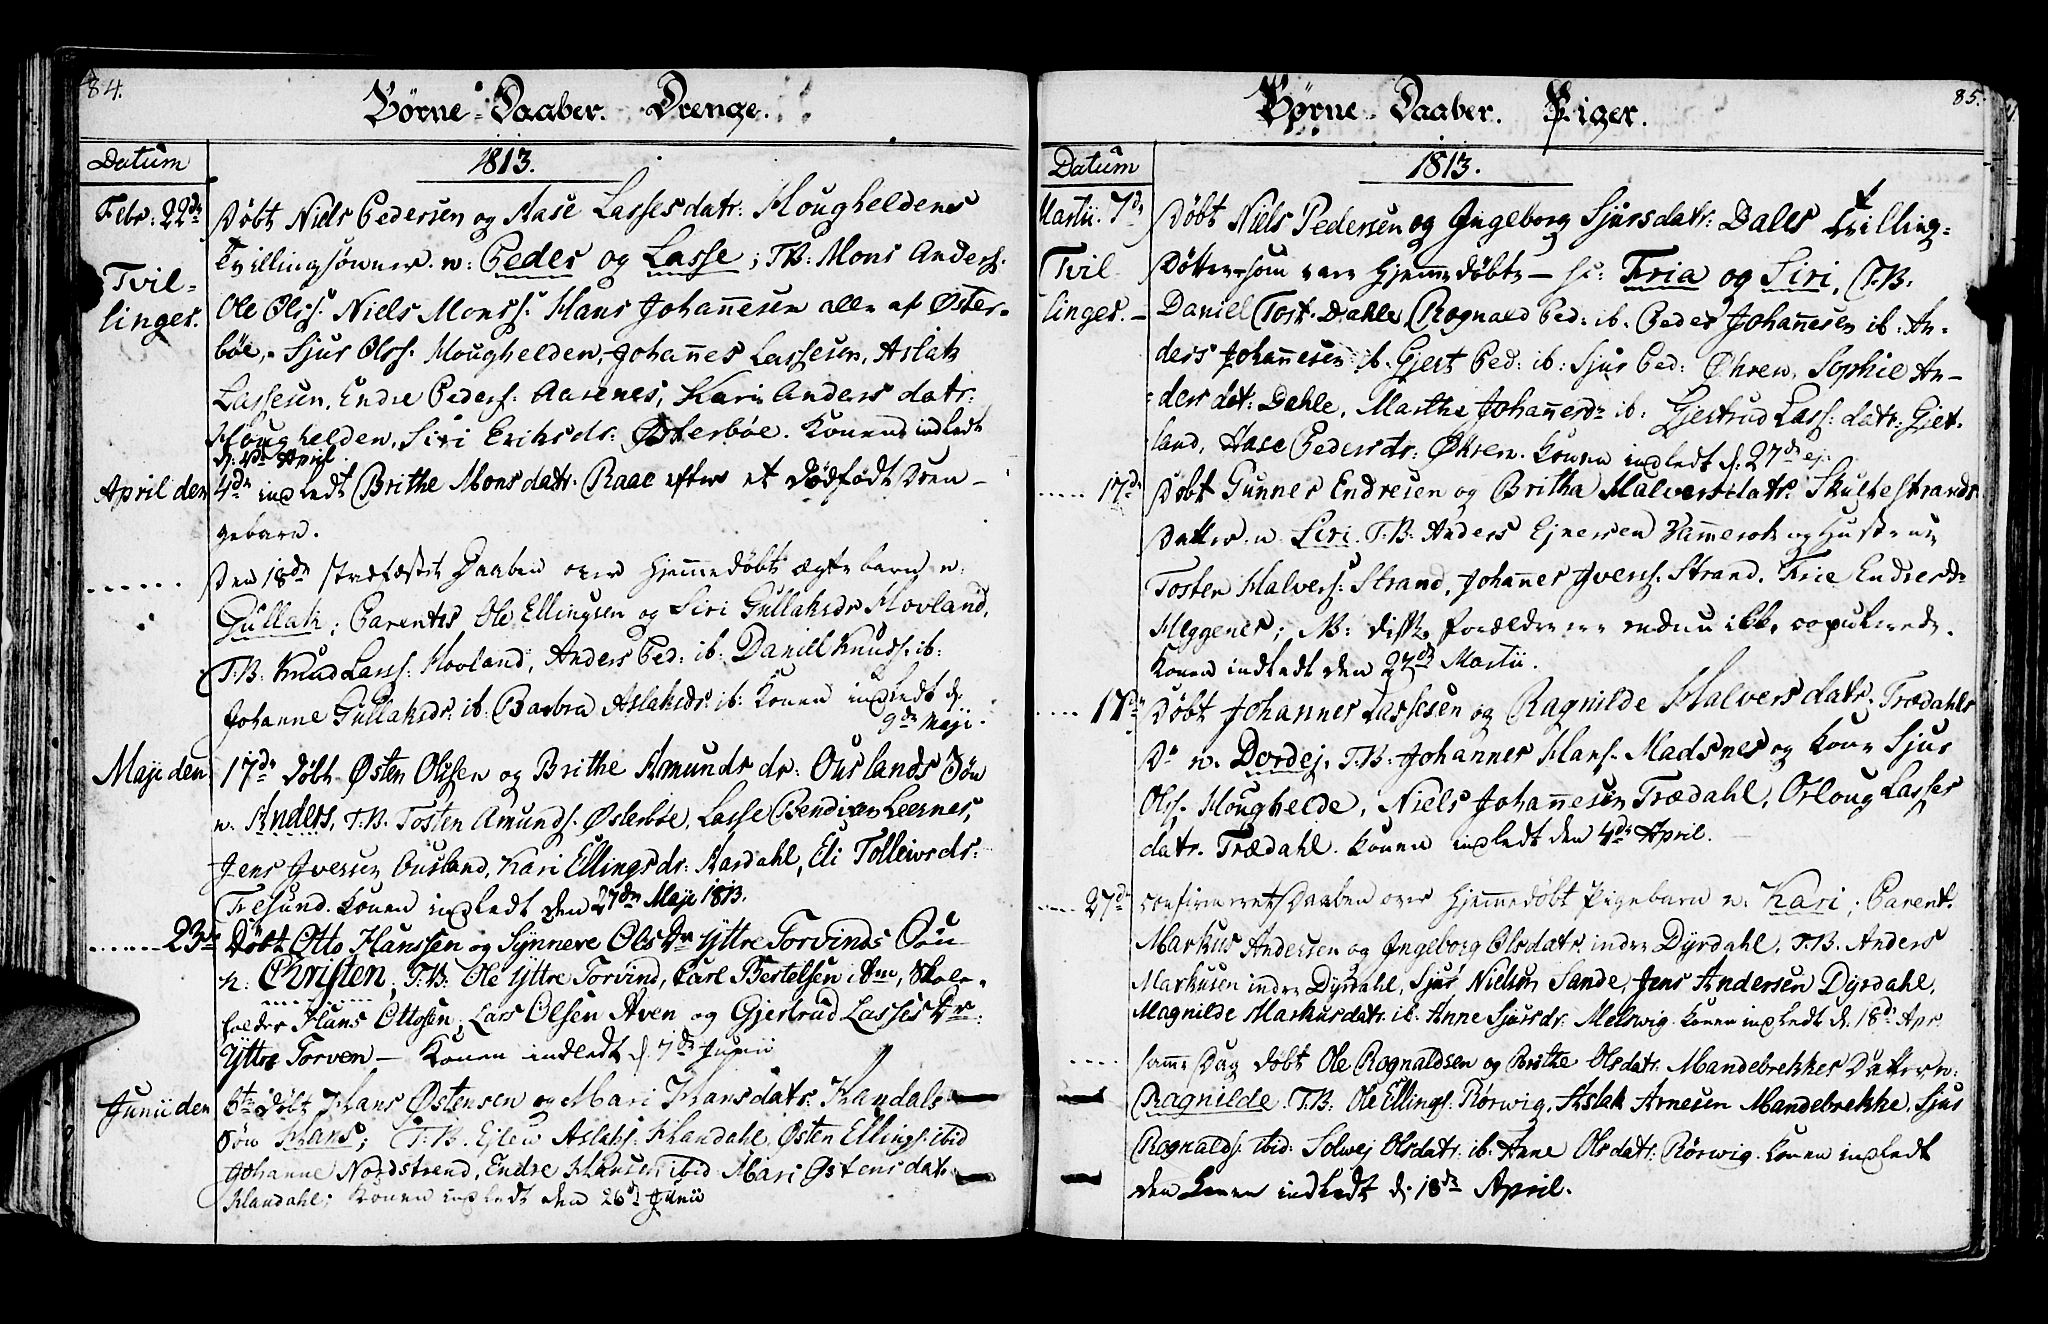 84.
Børne-Daaber. Drenge.
Datum 1813.
Febr: 22de Døbt Niels Pedersen og Aase Lassesdatr: Hougheldens
Tvil- Tvillingsønner. n: Peder og Lasse; T.B: Mons Anders:
linger. Ole Olss: Niels Monss: Hans Johannesen alle af Øster-
bøe,- Sjur Olss. Moughelden, Johannes Lassesen, Aslak
Lassesen, Endre Peders: Aarenes, Kari Andersdatr:
Houghelden. Siri Eriksdr: Østerbøe. Konen indledt
d: 4de April.
April den 4de indledt Brithe Monsdatr. Raae efter et dødfødt Dren-
gebarn.
..... Den 18de stadfæstet Daaben over Hjemmedøbt ægte barn n:
Gullak; Parentes Ole Ellingsen og Siri Gullaksdr Hovland,
T.B: Knud Lass: Hovland, Anders Ped: ib: Daniel Knuds: ib:
Johanne Gullaksdr: ib: Barbra Aslaksdr: ib: Konen indledt d:
9de Maji.
Maji den 17de Døbt Østen Olssen og Brithe Amundsdr: Ouslands Søn
n. Anders, T.B. Tosten Amunds: Østerbøe, Lasse Bendixen Leernes,
Jens Iversen Ousland, Kari Ellingsdr: Aardahl, Eli Tolleivsdr:
Tresund. Konen indledt den 27de Maji 1813.
........23de Døbt Otto Hanssen og Synneve Olsdr Yttre Torvinds Søn
n: Christen; T:B: Ole Yttre Torvind, Carl Bertelsen, Skole-
holder Hans Ottosen, Lars Olsen Aven og Gjertrud Lassesdr:
Yttre Torven - Konen indledt d. 7de Junii
Junii den 6te Døbt Hans Østensen og Mari Hansdatr: Handals
Søn Hans; T.B. Ejlew Aslaks: Handahl, Østen Ellings: ibid
Johanne Nordstrend, Endre Hansen ibid Mari Østensdatr
Handahl; Konen indledt den 26de Junii
85.
Børne-Daaber. Piger.
Datum 1813.
Martii. 7de Døbt Niels Pedersen og Ingeborg Sjursdatr: Dales Tvilling-
Tvil- Døttre som vare Hjemmedøbte - sc: Fria og Siri, T.B.
linger. - Daniel Tost. Dahle, Rognald Ped: ib. Peder Johannesen ib: An-
ders Johannesen ib. Gjert Ped: ib: Sjur Ped: Øhren, Sophie An-
dersdat: Dahle, Marthe Johannesdr ib: Gjertrud Lass:datr: Gjet-
land, Aase Pedersdr: Øhren. Konen indledt d. 27de ej.
..... 17de Døbt Gunner Endresen og Britha Halversdatr: Skultestrands
Datter. n. Siri. T.B: Anders Ejnersen Vammerok og Hustrue
Tosten Halvers: Strand, Johannes Ivers: Strand. Frie Endresdr
Meggenes; NB: disse Forældre ere endnu ikke copulerede.
Konen indledt den 27de Martii.
.... 17de Døbt Johannes Lassesen og Ragnilde Halversdatr. Trædahls
Dr n. Dordej, T.B. Johannes Hans. Madsnes og Kone Sjur
Ols: Houghelde, Niels Johannesen Trædahl, Orloug Lasses
datr. Trædahl. Konen indledt den 4de April.
..... 27de confirmeret Daaben over Hjemmedøbt Pigebarn n: Kari; Parent.
Markus Andersen og Ingeborg Olsdatr. indre Dyrdahl, T.B. Anders
Markusen indre Dyrdahl, Sjur Nielsen Sande, Jens Andersen Dyrdahl,
Magnilde Markusdatr. ib. Anne Sjursdr: Melswig. Konen indledt d. 18de Apr.
.... samme Dag Døbt Ole Rognaldsen og Brithe Olsdatr. Mandebrekkes Datter n:
Ragnilde. T.B: Ole Ellings: Rørwig, Aslak Arnesen Mandebrekke, Sjur
Rognalds: ibid: Solwej Olsdatr: ib. Anne Olsdatr. Rørwig. Konen indledt
den Konen indledt d. 18de April.